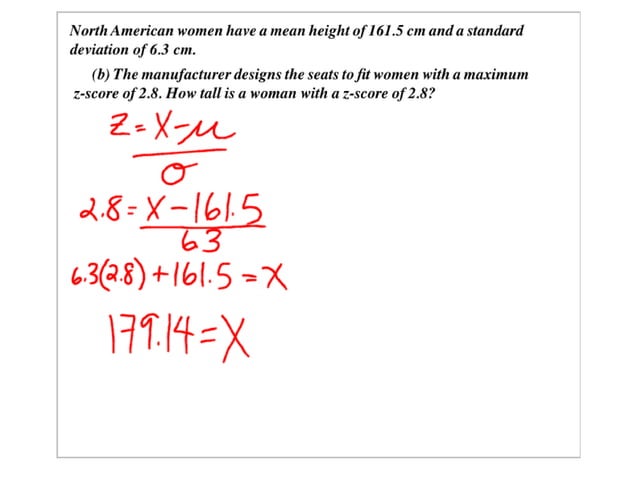 North American women have a mean height of 161.5 cm and a standard
deviation of 6.3 cm.
(b) The manufacturer designs the seats to fit women with a maximum
z-score of 2.8. How tall is a woman with a z-score of 2.8?
Z = X - μ
σ
2.8 = X - 161.5
63
6.3(2.8) + 161.5 = X
179.14 = X